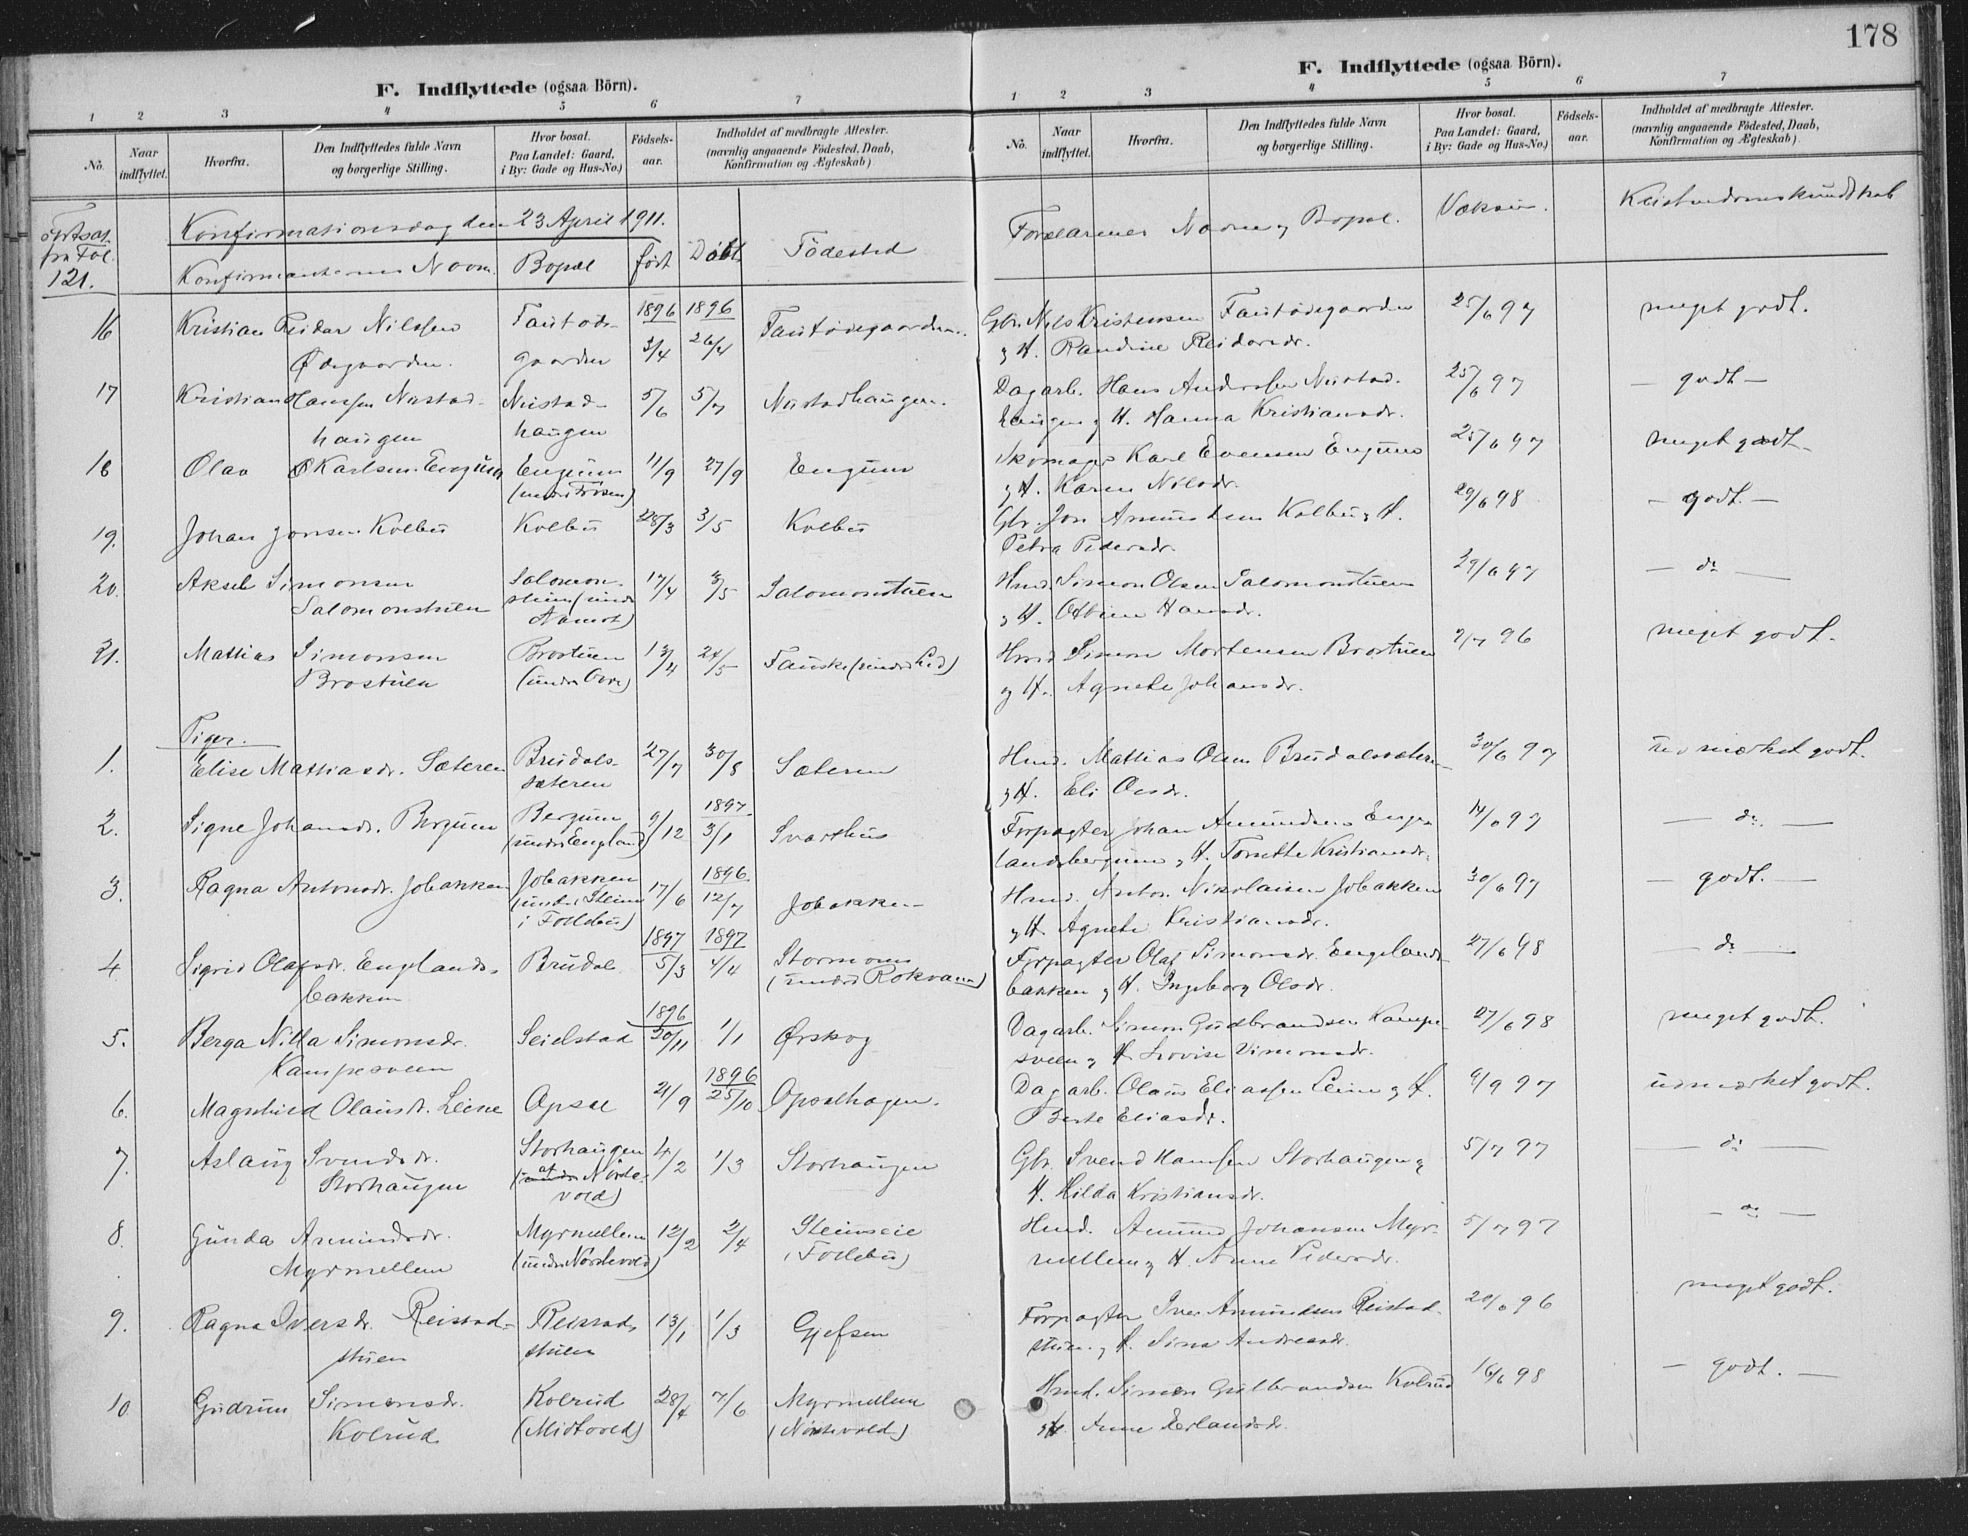 178
F. Indflyttede (ogsaa Börn).
1 2 3 4 5 6 7
No.
Naar indflyttet.
Hvorfra.
Den Indflyttedes fulde Navn
og borgerlige Stilling.
Hvor bosat.
Paa Landet: Gaard,
i By: Gade og Hus-No.)
Födsels-
aar.
Indholdet af medbragte Attester.
(navnlig angaaende Födested, Daab,
Konfirmation og Ægteskab)
Fortsat
fra Fol.
121.
Konfirmationsdag den 23 April 1911.
Konfirmanternes Navn Bopæl født Døbt Fødested
16 Kristian Reidar Nilssen Fautøde- 1896 1896 Fautødegaarden.
Ødegaarden. gaarden 3/4 26/4
17 Kristian Hanssen Nustad- Nustad- 5/6 5/7 Nustadhaugen.
haugen haugen
18 Olav Karlsen Engum Engum 11/9 27/9 Engum
19. Johan Jonsen Kolbu Kolbu 28/3 3/5 Kolbu
20. Aksel Simonsen Salomon- 17/4 3/5 Salomonstuen
Salomonstuen stuen (under
21. Mattias Simonsen Brostuen 13/4 24/5 Fauske (under Lid)
Brostuen
Piger.
1. Elise Mattiasdr. Sæteren Brudals- 27/7 30/8 Sæteren
sæteren
1897
2. Signe Johansdr. Bergum Bergum 9/12 3/1 Svarthus
(under England)
1896
3. Ragna Antonsdr. Jobakken Jobakken 17/6 12/7 Jobakken
(under Steine
i Follebu)
1897 1897
4. Sigrid Olafsdr. Englands- Brudal 5/3 4/4 Stormoen
bakken (under Rokvam)
1896
5. Berga Nilla Simonsdr. Seielstad 30/11 1/1 Ørskog
Kampesveen
1896
6. Magnhild Olausdr. Leine Opsal 21/9 25/10 Opsalhagen.
7. Aslaug Svendsdr. Storhaugen 4/2 1/3 Storhaugen
Storhaugen (af Nordre-
vold)
8. Gunda Amundsdr. Myrmellem 12/2 2/4 Steinseie
Myrmellem (under Nordrevold) (Follebu)
9. Ragna Iversdr. Reistad- Reistad- 13/1 1/3 Gjefsen
stuen stuen
10 Gudrun Simensdr. Kolrud 28/4 7/6 Myrmellem
Kolrud (Midtvold) (Nordrevold)
F. Indflyttede (ogsaa Börn).
1 2 3 4 5 6 7
No.
Naar indflyttet.
Hvorfra.
Den Indflyttedes fulde Navn
og borgerlige Stilling.
Hvor bosat.
Paa Landet: Gaard,
i By: Gade og Hus-No.)
Födsels-
aar.
Indholdet af medbragte Attester.
(navnlig angaaende Födested, Daab,
Konfirmation og Ægteskab)
Forældrenes Navn og Bopæl. Vaksin. Kristendomskundskab
Gbr. Nils Kristensen Fautødegaarden 25/6 97 meget godt.
og H. Randine Reidarsdr.
Dagarb. Hans Andersen Nustad- 25/6 97 – godt –
haugen og H. Hanna Kristiansdr.
Skomager Karl Evensen Engum 25/6 97 meget godt
og H. Karen Nilsdr.
Gbr. Jon Amundsen Kolbu og H. 29/6 98 – godt. –
Petra Pedersdr.
Hmd. Simon Olsen Salomonstuen 29/6 97 – do –
og H. Hansdr.
Hmd. Simon Mortensen Brostuen 2/7 96 meget godt.
og H. Agnete Johansdr.
Hmd. Mattias Olsen Brudalssæteren 30/6 97 udmærket godt.
og H. Eli Olsdr.
Forpagter Johan Amundsen Eng- 14/6 97 – do. –
landsbergum og H. Tonette Kristiansdr.
Hmd. Anton Nikolaisen Jobakken 30/6 97 – godt. –
og H. Agnete Kristiansdr.
Forpagter Olaf Simonsdr. Englands- 27/6 98 – do –
bakken og H. Ingeborg Olsdr.
Dagarb. Simon Gudbrandsen Kampe- 27/6 98 meget godt.
sveen og H. Lovise Simonsdr.
Dagarb. Olaus Eliassen Leine og H. 9/9 97 udmærket godt.
Berte Eliasdr.
Gbr. Svend Hansen Storhaugen og 5/7 97 – do –
H. Hilda Kristiansdr.
Hmd. Amund Johansen Myr- 5/7 97 – do –
mellem og H. Anne Pedersdr.
Forpagter Iver Amundsen Reistad- 20/6 96 meget godt.
stuen og H. Sina Andreasdr.
Hmd. Simen Gulbrandsen Kolrud 16/6 98 – godt. –
og H. Anne Erlandsdr.